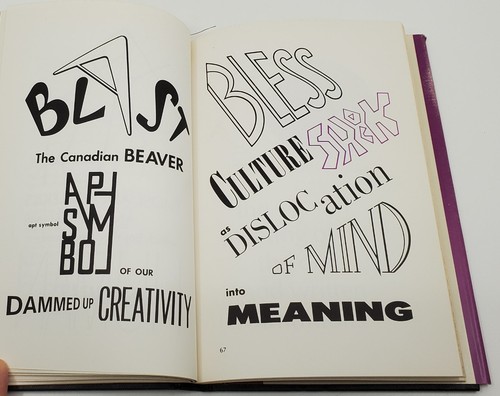 BLAST
The Canadian BEAVER
apt symbol
APT SYMBOL
OF OUR
DAMMED UP CREATIVITY
BLESS
CULTURE SHOCK
as
DISLOCation
OF MIND
into
MEANING
67